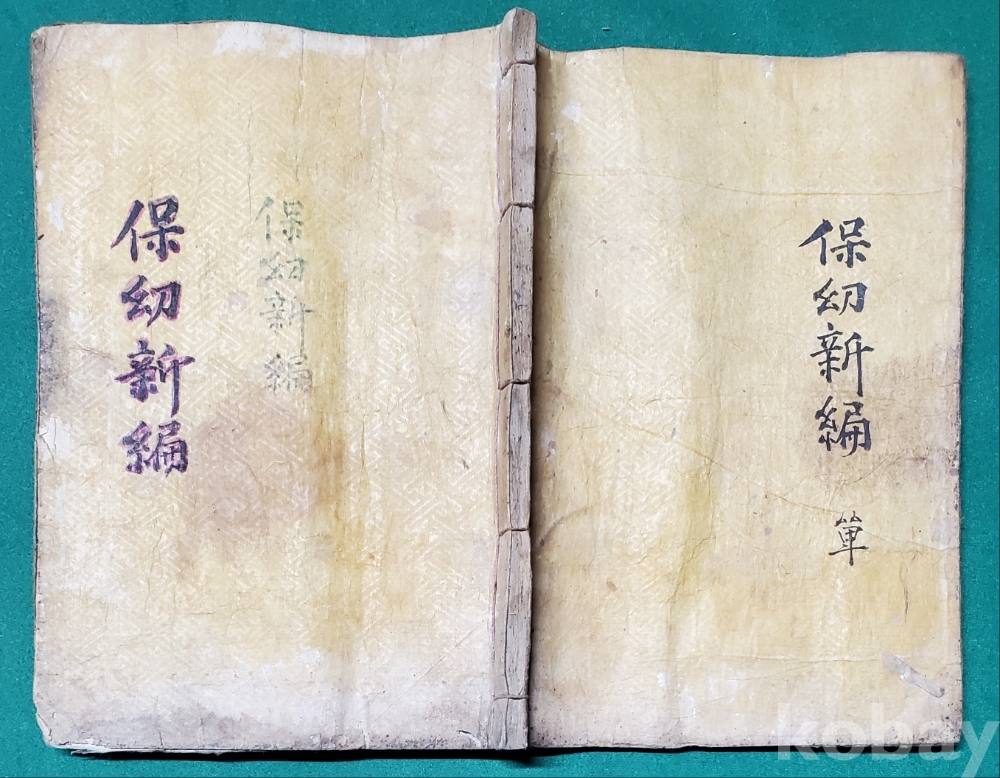 保幼新編
單
保幼新編
保幼新編
kobay